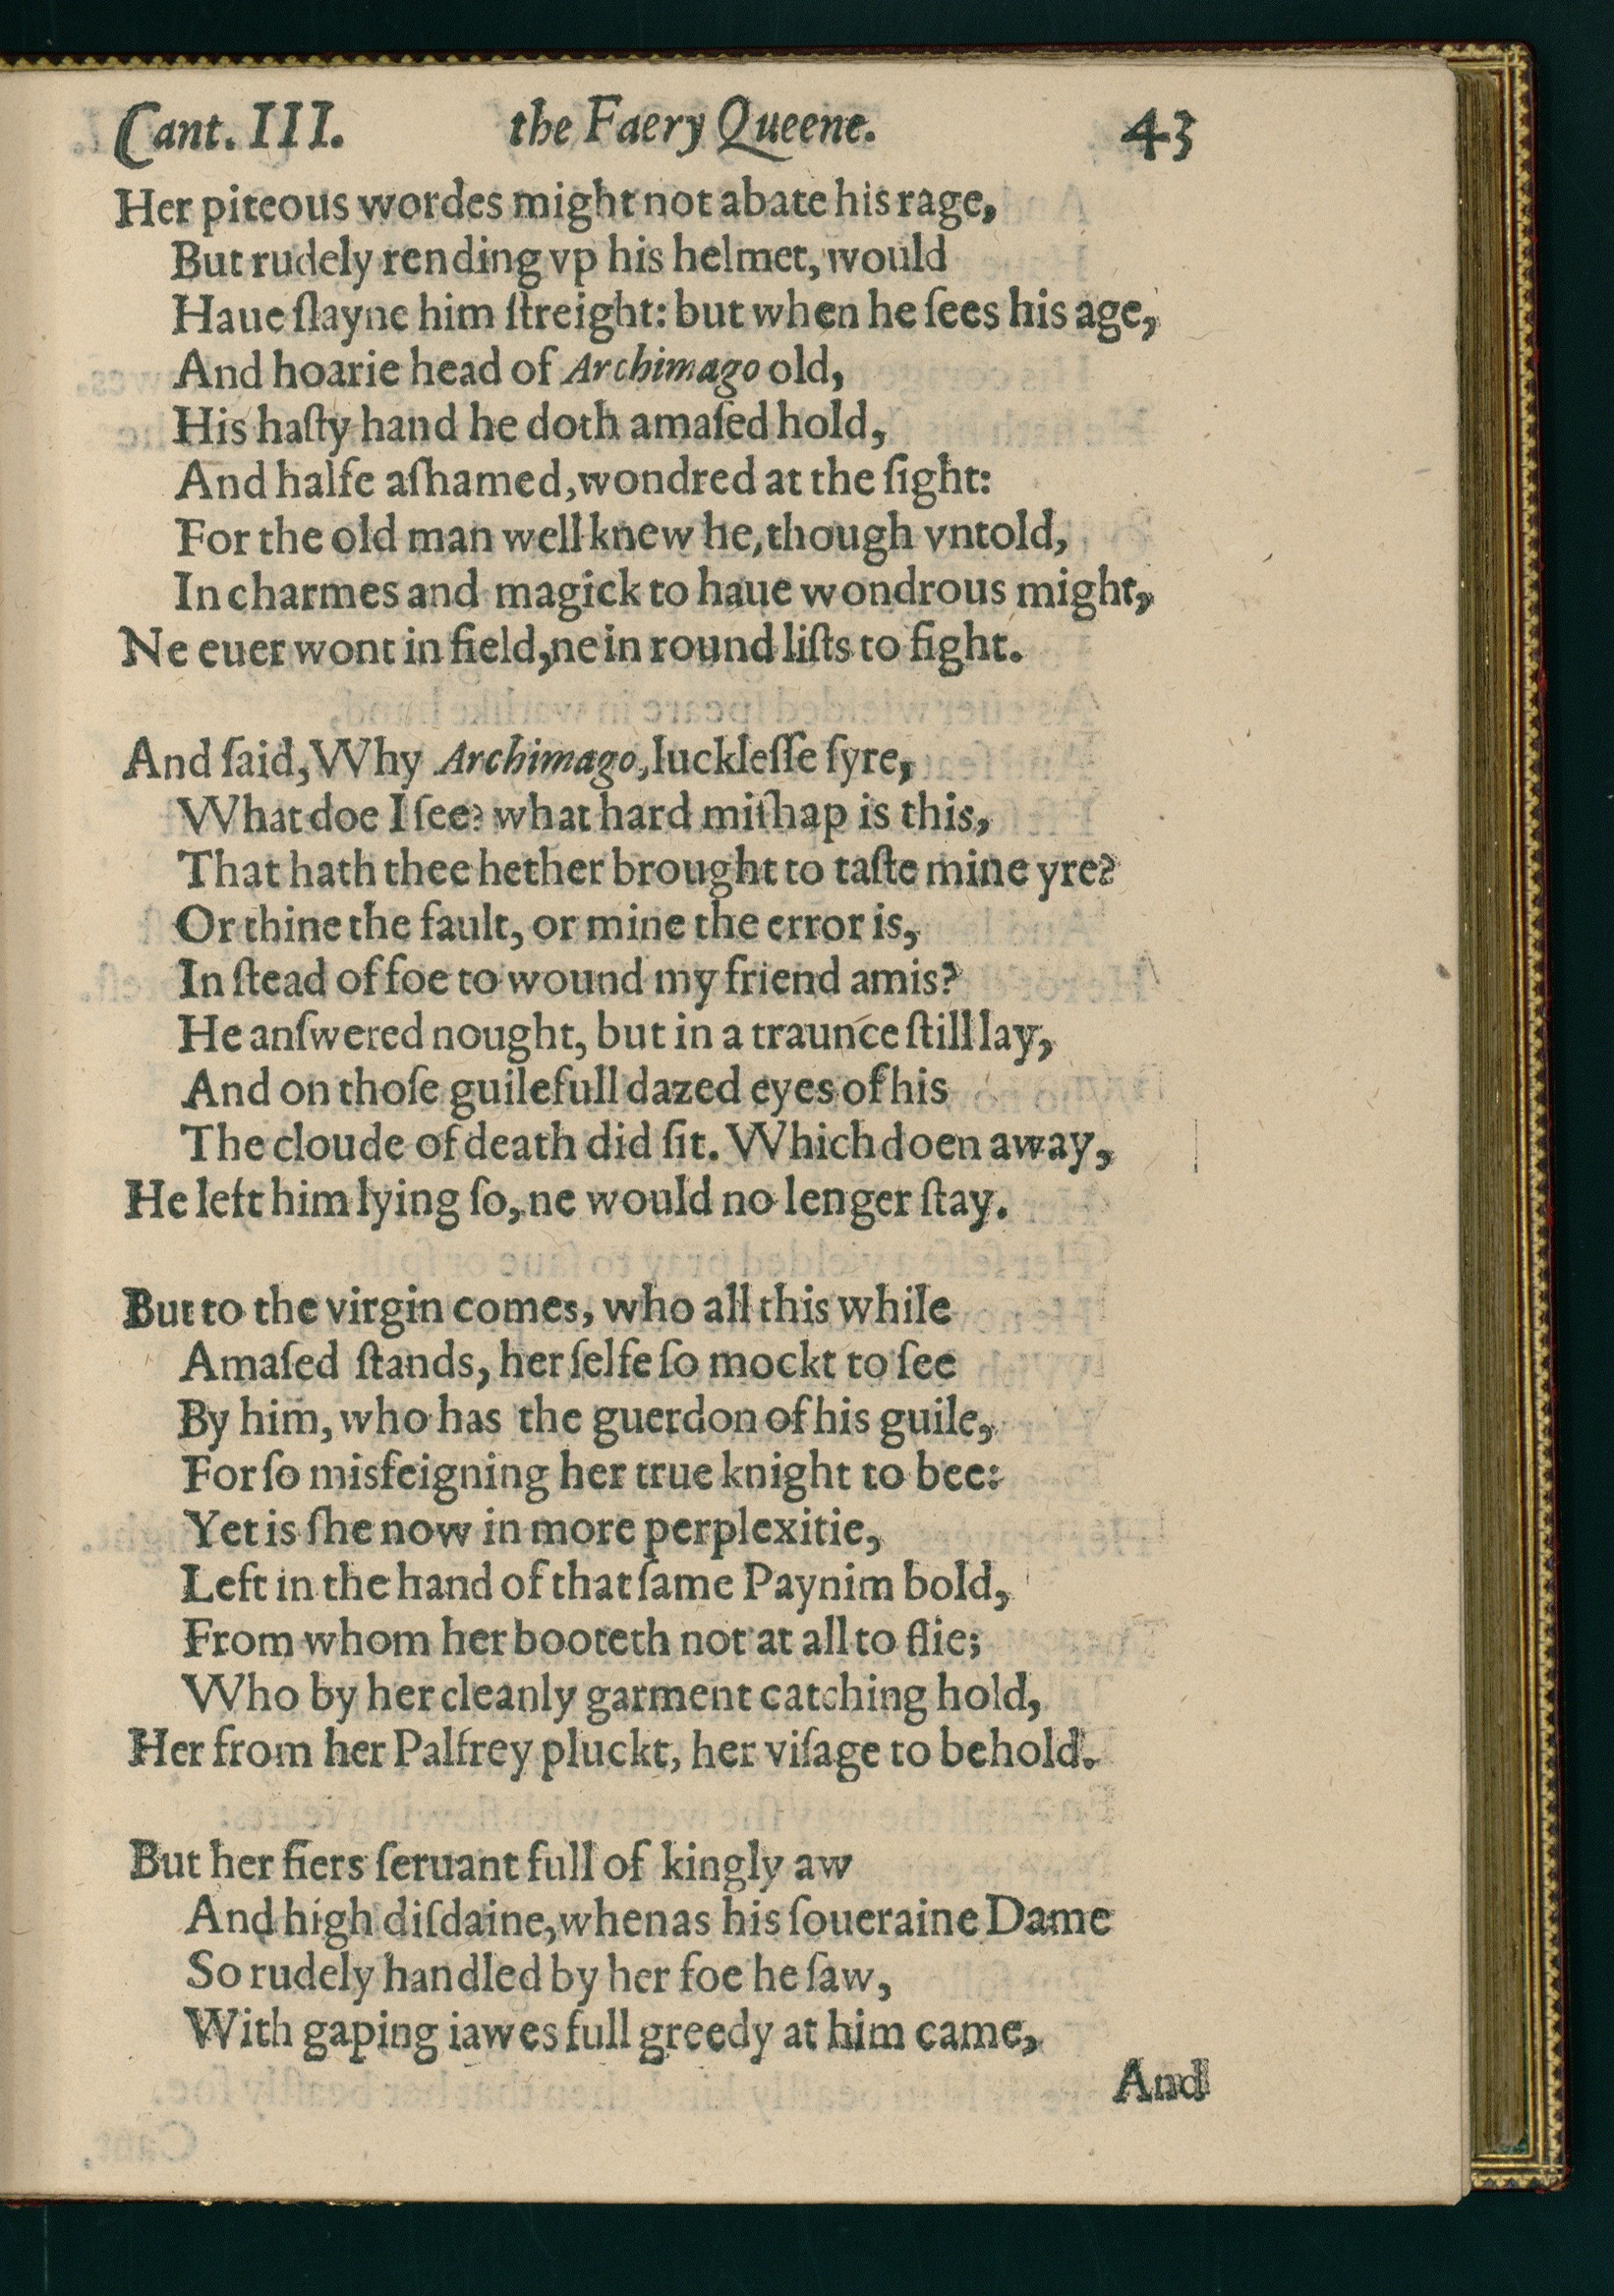 Cant. III. the Faery Queene. 43
Her piteous wordes might not abate his rage,
But rudely rending vp his helmet, would
Haue ſlayne him ſtreight: but when he ſees his age,
And hoarie head of Archimago old,
His haſty hand he doth amaſed hold,
And halfe aſhamed, wondred at the ſight:
For the old man well knew he, though vntold,
In charmes and magick to haue wondrous might,
Ne euer wont in field, ne in round liſts to fight.
And ſaid, Why Archimago, luckleſſe ſyre,
What doe I ſee? what hard miſhap is this,
That hath thee hether brought to taſte mine yre?
Or thine the fault, or mine the error is,
In ſtead of foe to wound my friend amis?
He anſwered nought, but in a traunce ſtill lay,
And on thoſe guilefull dazed eyes of his
The cloude of death did ſit. Which doen away,
He left him lying ſo, ne would no lenger ſtay.
But to the virgin comes, who all this while
Amaſed ſtands, her ſelfe ſo mockt to ſee
By him, who has the guerdon of his guile,
For ſo misfeigning her true knight to bee:
Yet is ſhe now in more perplexitie,
Left in the hand of that ſame Paynim bold,
From whom her booteth not at all to flie;
Who by her cleanly garment catching hold,
Her from her Palfrey pluckt, her viſage to behold.
But her fiers ſeruant full of kingly aw
And high diſdaine, whenas his ſoueraine Dame
So rudely handled by her foe he ſaw,
With gaping iawes full greedy at him came,
And